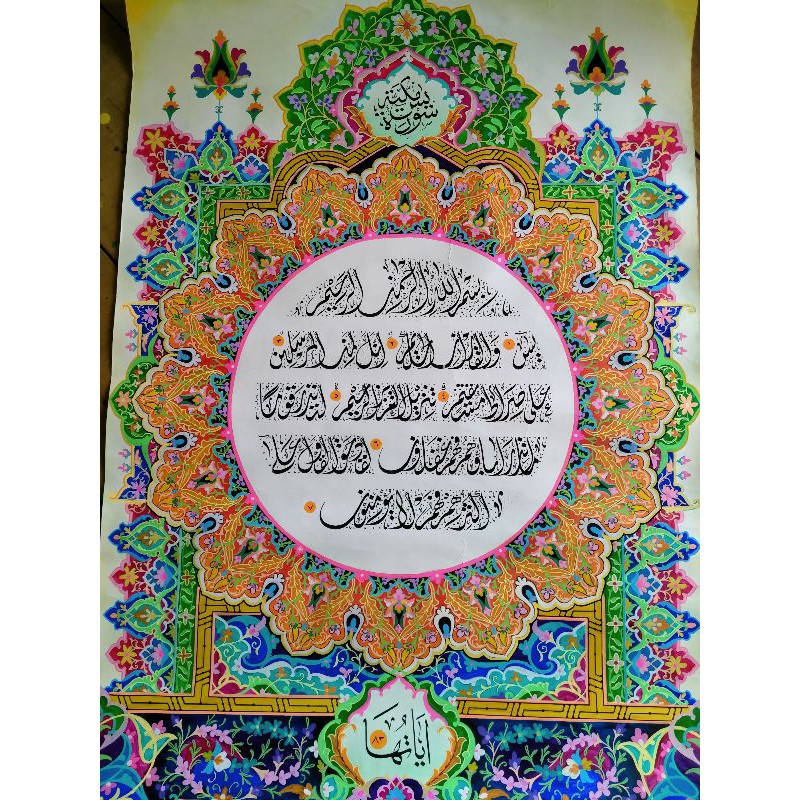 سورة يس مكية
بسم الله الرحمن الرحيم
يس ١ والقرآن الحكيم ٢ إنك لمن المرسلين ٣
على صراط مستقيم ٤ تنزيل العزيز الرحيم ٥ لتنذر قوما
ما أنذر آباؤهم فهم غافلون ٦ لقد حق القول على
أكثرهم فهم لا يؤمنون ٧
اياتها ٨٣